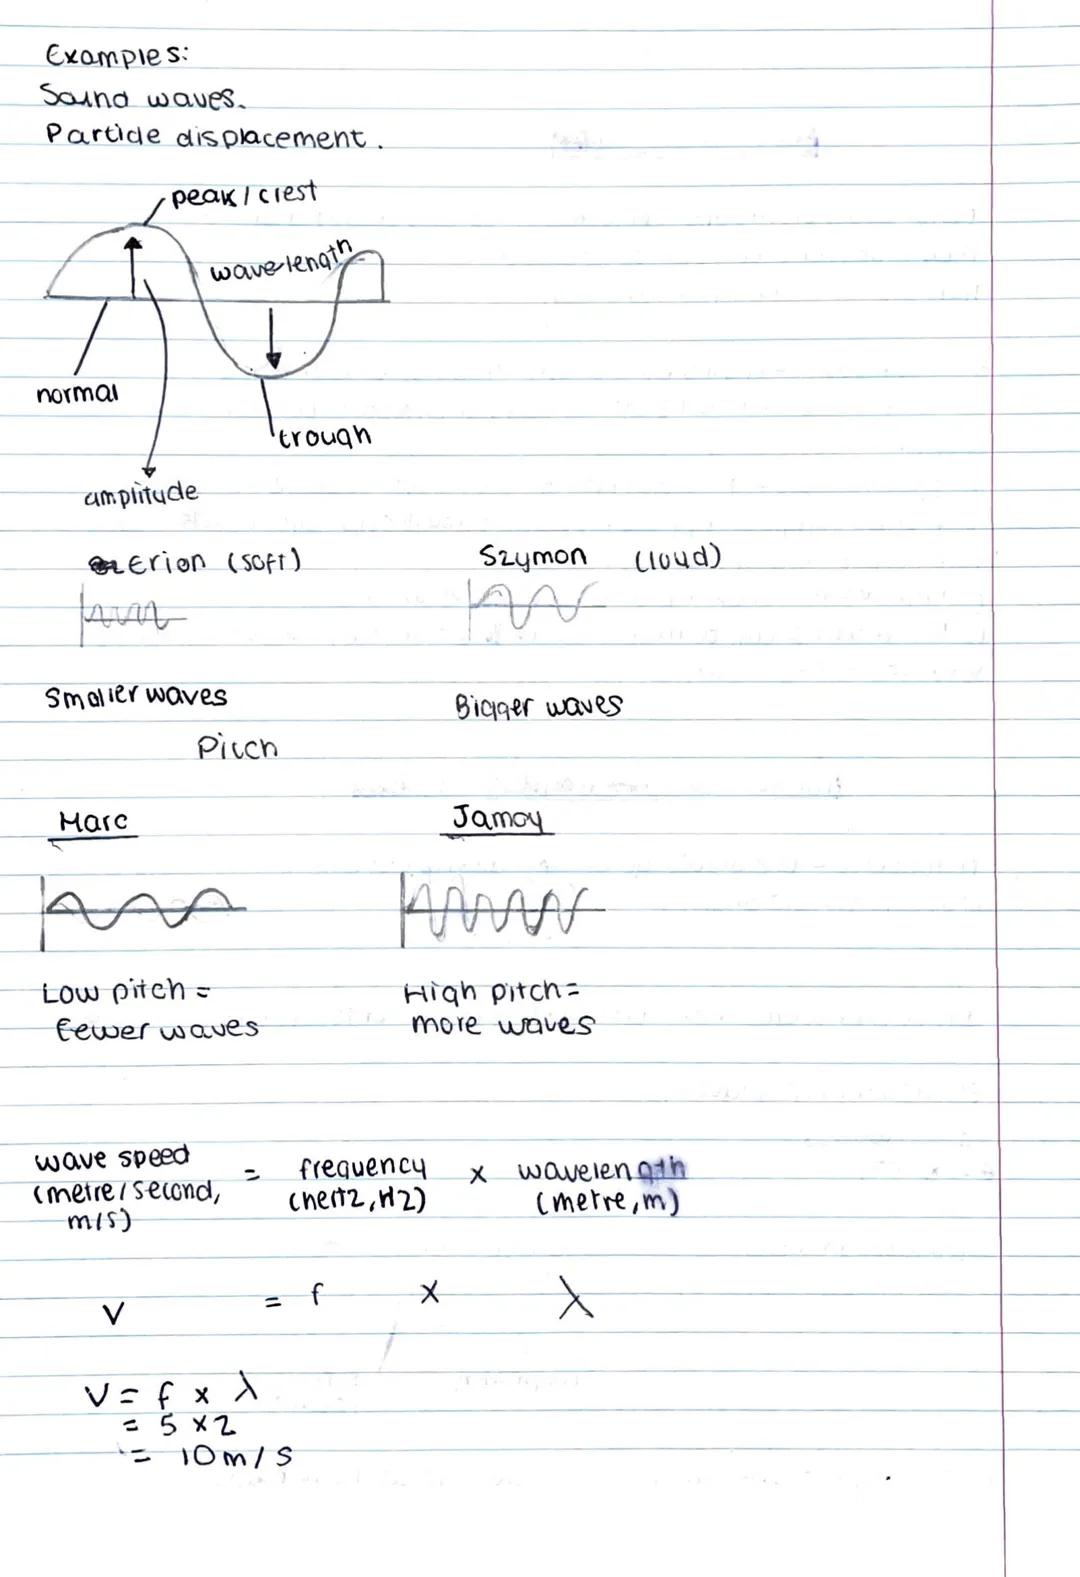 Examples:
Sound waves.
Particle displacement.
peak / crest
wavelength
normal
trough
amplitude
Erion (soft) Szymon (loud)
Smaller waves Bigger waves
Pitch
Marc Jamoy
Low pitch = High pitch =
fewer waves more waves
wave speed = frequency x wavelength
(metre/second, (hertz, Hz) (metre, m)
m/s)
V = f x λ
V = f x λ
= 5 x 2
= 10 m/s